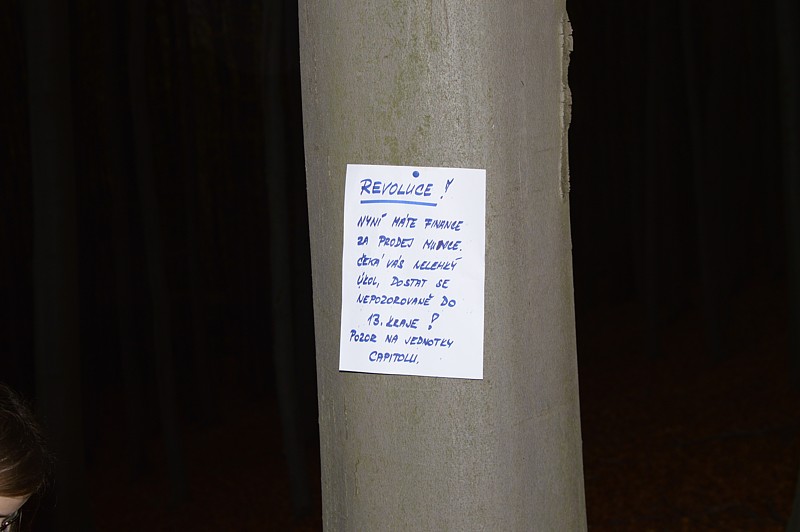 REVOLUCE!
NYNÍ MÁTE FINANCE
ZA PRODEJ MUNICE.
ČEKÁ VÁS NELEHKÝ
ÚKOL, DOSTAT SE
NEPOZOROVANĚ DO
13. KRAJE!
POZOR NA JEDNOTKY
CAPITOLU.